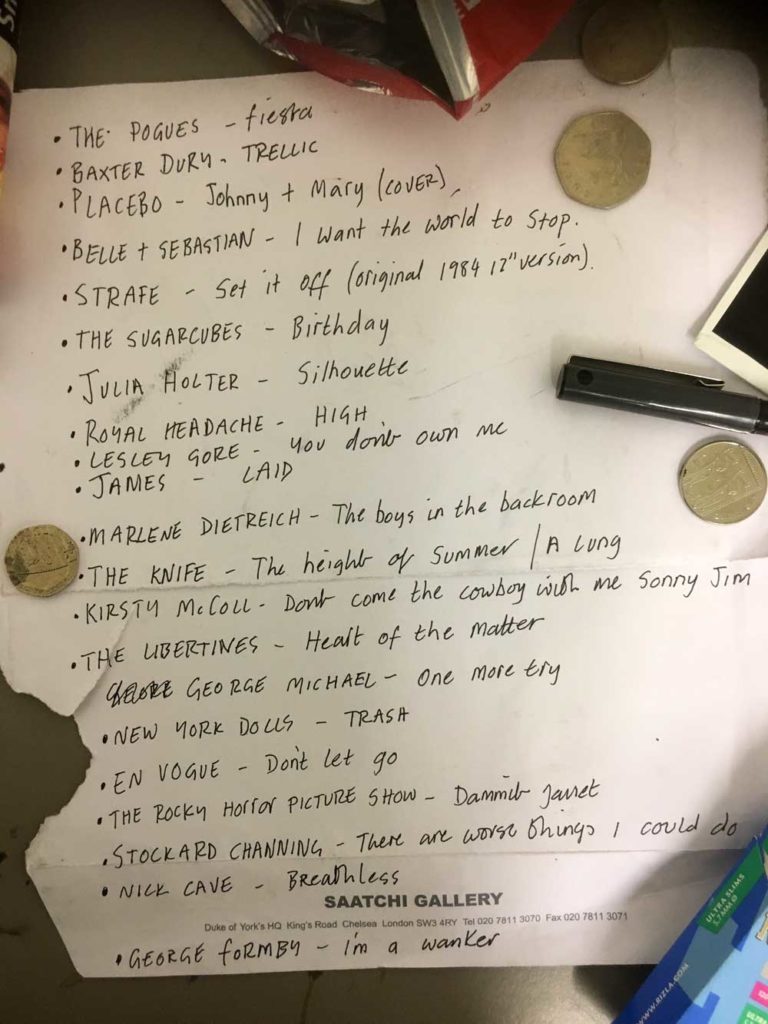 • THE POGUES - fiesta
• BAXTER DURY - TRELLIC
• PLACEBO - Johnny + Mary (COVER)
• BELLE + SEBASTIAN - I want the world to stop.
• STRAFE - Set it off (original 1984 12" version).
• THE SUGARCUBES - Birthday
• JULIA HOLTER - Silhouette
• ROYAL HEADACHE - HIGH
• LESLEY GORE - you don't own me
• JAMES - LAID
• MARLENE DIETREICH - The boys in the backroom
• THE KNIFE - The height of summer / A Lung
• KIRSTY McCOLL - Dont come the cowboy with me Sonny Jim
• THE LIBERTINES - Heart of the matter
GEORGE MICHAEL - One more try
• NEW YORK DOLLS - TRASH
• EN VOGUE - Don't let go
• THE ROCKY HORROR PICTURE SHOW - Dammit Janet
• STOCKARD CHANNING - There are worse things I could do
• NICK CAVE - Breathless
SAATCHI GALLERY
Duke of York's HQ King's Road Chelsea London SW3 4RY Tel 020 7811 3070 Fax 020 7811 3071
• GEORGE FORMBY - i'm a wanker
ULTRA SLIMS
5.7MM Ø
WWW.RIZLA.COM